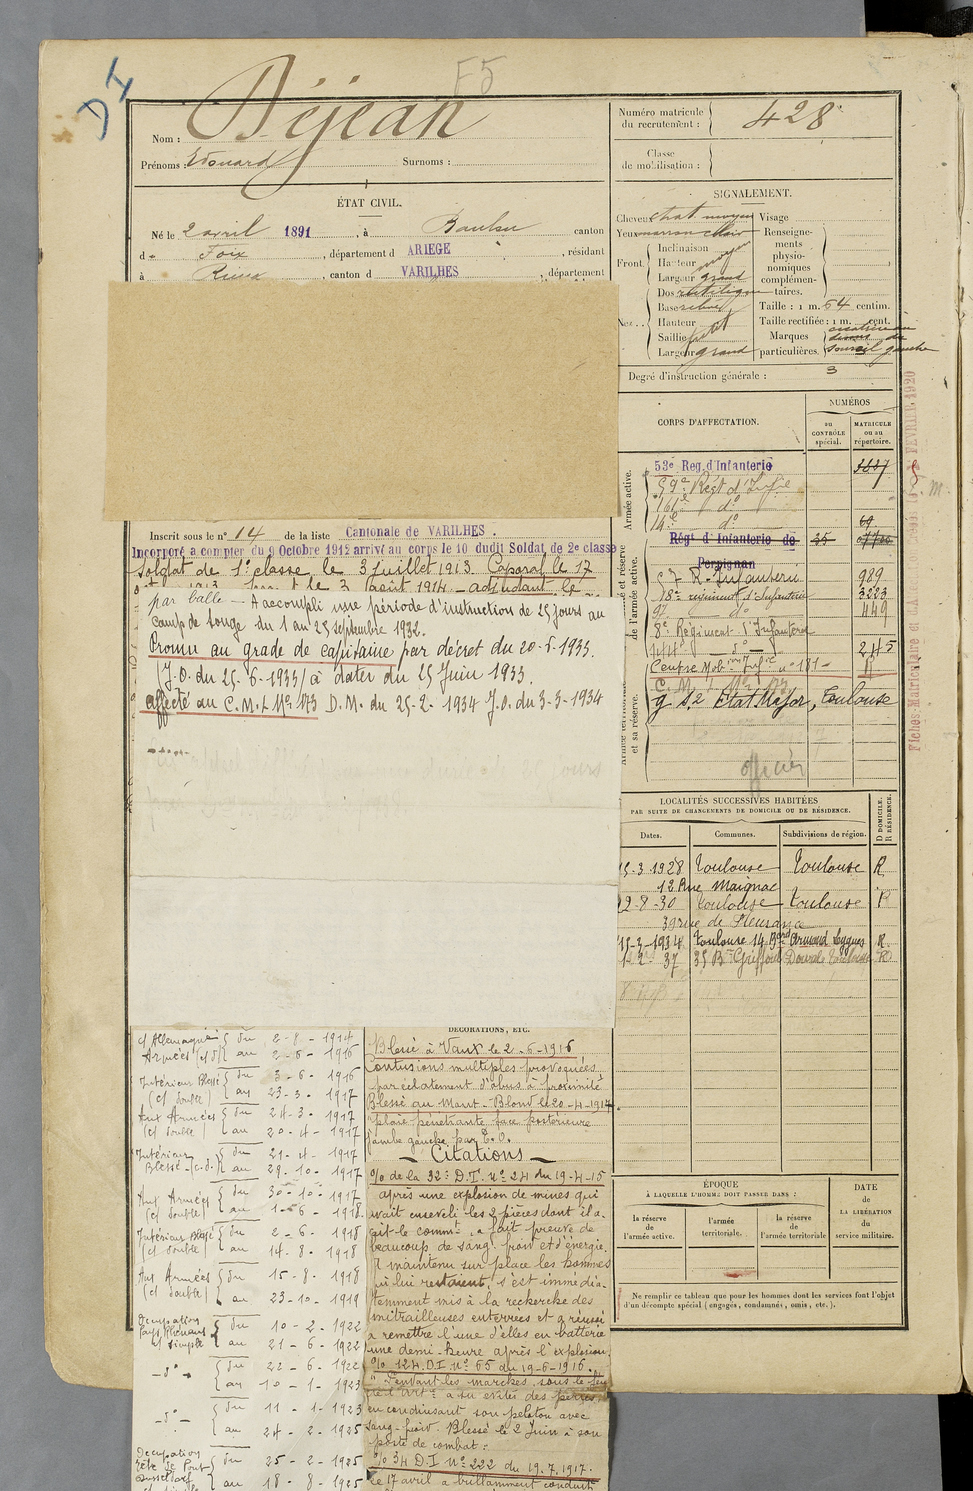 D4
F5
Nom : Déjean
Prénoms : Edouard Surnoms :
Numéro matricule du recrutement : 428
Classe de mobilisation :
ÉTAT CIVIL.
Né le 2 avril 1891, à Baulou canton
de Foix, département d ARIEGE, résidant
à Rieux, canton d VARILHES, département
SIGNALEMENT.
Cheveux chat moyen Visage
Yeux marron clair Renseigne-
ments
physio-
nomiques
complémen-
taires.
Front. Inclinaison moyen
Hauteur
Largeur grand
Nez... Dos rectiligne
Base relevé
Hauteur
Saillie petit
Largeur grand
Taille : 1 m. 64 centim.
Taille rectifiée : 1 m. cent.
Marques particulières. cicatrice au
dessus du
sourcil gauche
Degré d'instruction générale : 3
CORPS D'AFFECTATION.
NUMÉROS
au CONTRÔLE spécial.
MATRICULE ou au répertoire.
Armée active.
53e Reg. d'Infanterie
59e Regt d'Infie
161e do
14e do 69
Régt d'Infanterie de 35
Perpignan
et réserve de l'armée active.
57 R. Infanterie 989
18e régiment d'Infanterie 3223
97 do 449
8e Régiment d'Infanterie
144e do 245
Centre Mob. Infie no 181
C. M. I. No 173
g s.2 Etat Major, Toulouse
officier
et sa réserve.
Fiches Matriculaire
FEVRIER 1920
Inscrit sous le n° 14 de la liste Cantonale de VARILHES.
Incorporé a compter du 9 Octobre 1912 arrivé au corps le 10 dudit Soldat de 2e classe
Soldat de 1e classe le 3 juillet 1913. Caporal le 17
le 3 août 1914 - adjudant le
par balle - A accompli une période d'instruction de 25 jours au
Camp de Souge du 1 au 25 septembre 1932.
Promu au grade de capitaine par décret du 20-6-1933.
(J.O. du 25-6-1933) à dater du 25 Juin 1933.
affecté au C.M.I. No 173 D.M. du 25-2-1934 J.O. du 3-3-1934
LOCALITÉS SUCCESSIVES HABITÉES
PAR SUITE DE CHANGEMENTS DE DOMICILE OU DE RÉSIDENCE.
Dates. Communes. Subdivisions de région. D DOMICILE. R RÉSIDENCE.
15-3-1928 Toulouse Toulouse R
12 Rue Maignac
22-8-30 Toulouse Toulouse R
39 rue de Fleurance
15-3-1934 Toulouse 14 Bd Armand Leygues R.
12-2-37 35 Bd Griffoul Dorval Toulouse R
ÉPOQUE
À LAQUELLE L'HOMME DOIT PASSER DANS :
la réserve de l'armée active.
l'armée territoriale.
la réserve de l'armée territoriale
DATE
de
LA LIBÉRATION
du
service militaire.
Ne remplir ce tableau que pour les hommes dont les services font l'objet
d'un décompte spécial (engagés, condamnés, omis, etc.).
DÉCORATIONS, ETC.
c/ Allemagne du 2-8-1914
Armées (c/d) au 2-6-1916
Intérieur Blessé du 3-6-1916
(c/ double) au 23-3-1917
Aux Armées du 24-3-1917
(c/ double) au 20-4-1917
Intérieur du 21-4-1917
Blessé (c.d.) au 29-10-1917
Aux Armées du 30-10-1917
(c/ double) au 1-6-1918
Intérieur Blessé du 2-6-1918
(c/ double) au 14-8-1918
Aux Armées du 15-8-1918
(c/ double) au 23-10-1919
Occupation du 10-2-1922
Pays Rhénans
c/ simple au 21-6-1922
-do- du 22-6-1922
au 10-1-1923
-do- du 11-1-1923
au 24-2-1925
Occupation
tête de Pont du 25-2-1925
Dusseldorf au 18-8-1925
Blessé à Vaux le 2-6-1916
Contusions multiples provoquées
par éclatement d'obus à proximité
Blessé au Mont-Blond le 20-4-1917.
plaie pénétrante face postérieure
jambe gauche par E.O.
- Citations -
% de la 32e D.I. No 24 du 19-4-15
après une explosion de mines qui
avait enseveli les 2 pièces dont il a-
vait le commt, a fait preuve de
beaucoup de sang froid et d'énergie.
A maintenu sur place les hommes
qui lui restaient, s'est immédia-
tement mis à la recherche des
mitrailleuses enterrées et a réussi
a remettre l'une d'elles en batterie
une demi-heure après l'explosion.
% 124 D.I. No 65 du 19-6-1916.
"Pendant les marches, sous le feu
de l'Artie a su éviter des pertes
en conduisant son peloton avec
sang-froid. Blessé le 2 Juin à son
poste de combat :
% 34 D.I. No 222 du 19.7.1917.
Le 17 avril a brillamment conduit